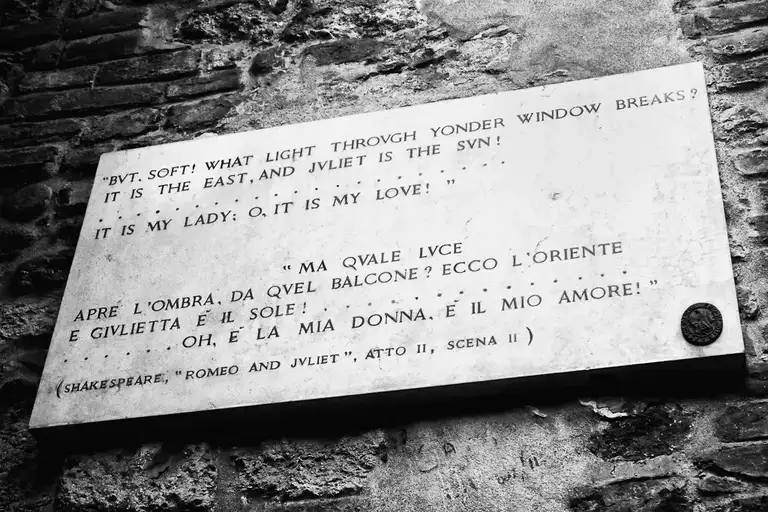 "BVT, SOFT! WHAT LIGHT THROVGH YONDER WINDOW BREAKS?
IT IS THE EAST, AND JVLIET IS THE SVN!
. . . . . . . . . . . . . . . . . . . .
IT IS MY LADY; O, IT IS MY LOVE! "
" MA QVALE LVCE
APRE L'OMBRA, DA QVEL BALCONE? ECCO L'ORIENTE
E GIVLIETTA È IL SOLE! . . . . . . . . . . . . . . .
. . . . . . OH, È LA MIA DONNA, È IL MIO AMORE! "
(SHAKESPEARE, "ROMEO AND JVLIET", ATTO II, SCENA II )